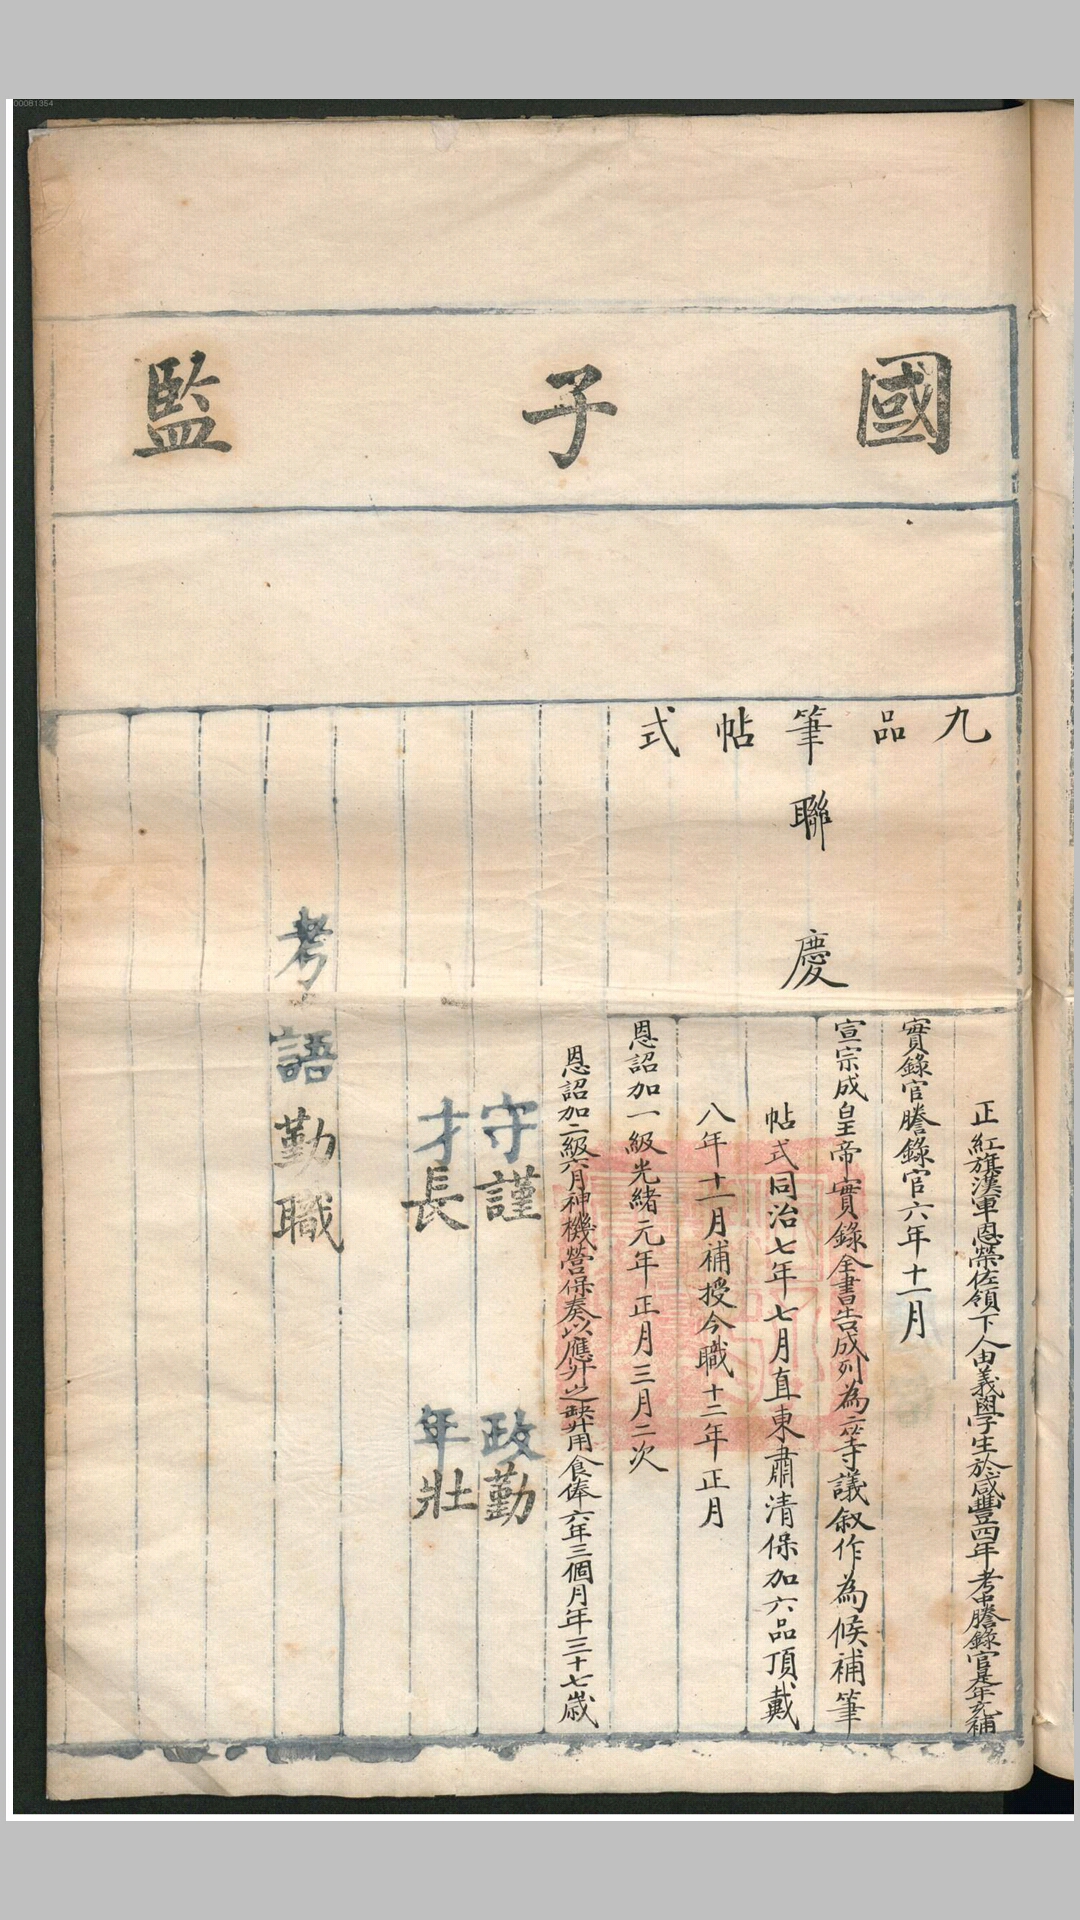 00081354
國子監
九品筆帖式
聯慶
正紅旗漢軍恩榮佐領下人由義學生於咸豐四年考中謄錄官是年充補
實錄官謄錄官六年十一月
宣宗成皇帝實錄全書告成列為二等議敘作為候補筆
帖式同治七年七月直東肅清保加六品頂戴
八年十一月補授今職十二年正月
恩詔加一級光緒元年正月三月二次
恩詔加二級六月神機營保奏以應升之缺升用食俸六年三個月年三十七歲
守謹 政勤
才長 年壯
考語勤職